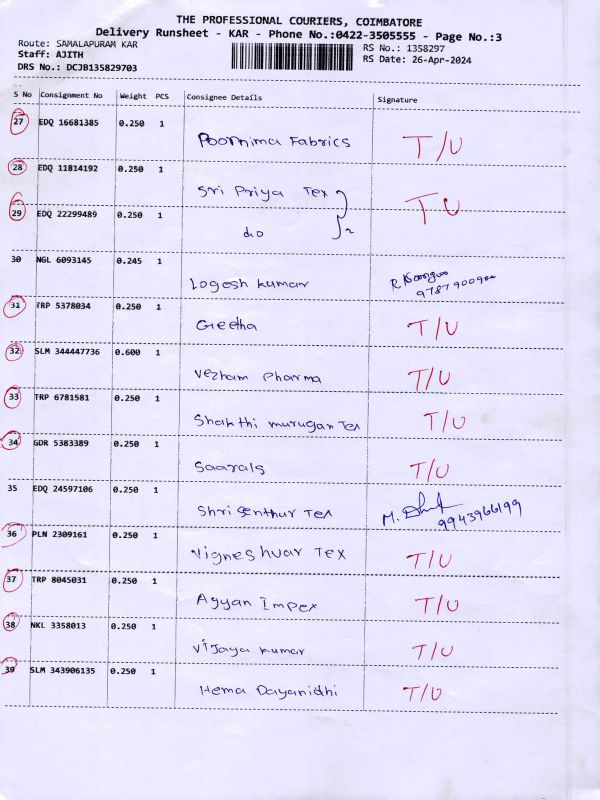 THE PROFESSIONAL COURIERS, COIMBATORE
Delivery Runsheet - KAR - Phone No.:0422-3505555 - Page No.:3
Route: SAMALAPURAM KAR RS No.: 1358297
Staff: AJITH RS Date: 26-Apr-2024
DRS No.: DCJB135829703
S No Consignment No Weight PCS Consignee Details Signature
27 EDQ 16681385 0.250 1
Poornima Fabrics T/U
28 EDQ 11814192 0.250 1
Sri Priya Tex T U
29 EDQ 22299489 0.250 1
do 2
30 NGL 6093145 0.245 1
Logesh kumar
31 TRP 5378034 0.250 1
Geetha T/U
32 SLM 344447736 0.600 1
Vezham Pharma T/U
33 TRP 6781581 0.250 1
Shakthi murugan Tex T/U
34 GDR 5383389 0.250 1
Saarals T/U
35 EDQ 24597106 0.250 1
Shri Senthur Tex M. 9943966199
36 PLN 2309161 0.250 1
Vigneshwar Tex T/U
37 TRP 8045031 0.250 1
Agyan Impex T/U
38 NKL 3358013 0.250 1
Vijaya kumar T/U
39 SLM 343906135 0.250 1
Hema Dayanidhi T/U